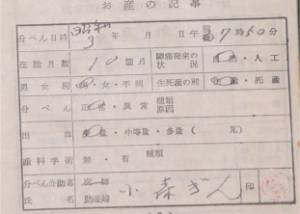 お産の記事
分べん日時 3年 月 日 午 7時50分
在胎月数 10箇月 陣痛発来の状況 自然・人工
男女別 男・女・不明 生死産の別 生産・死産
分べん 正常・異常 種類 原因
出血 少量・中等量・多量( 瓦)
産科手術 無・有 種類
分べん介助者氏名 医師 助産婦 小森ぎん 印